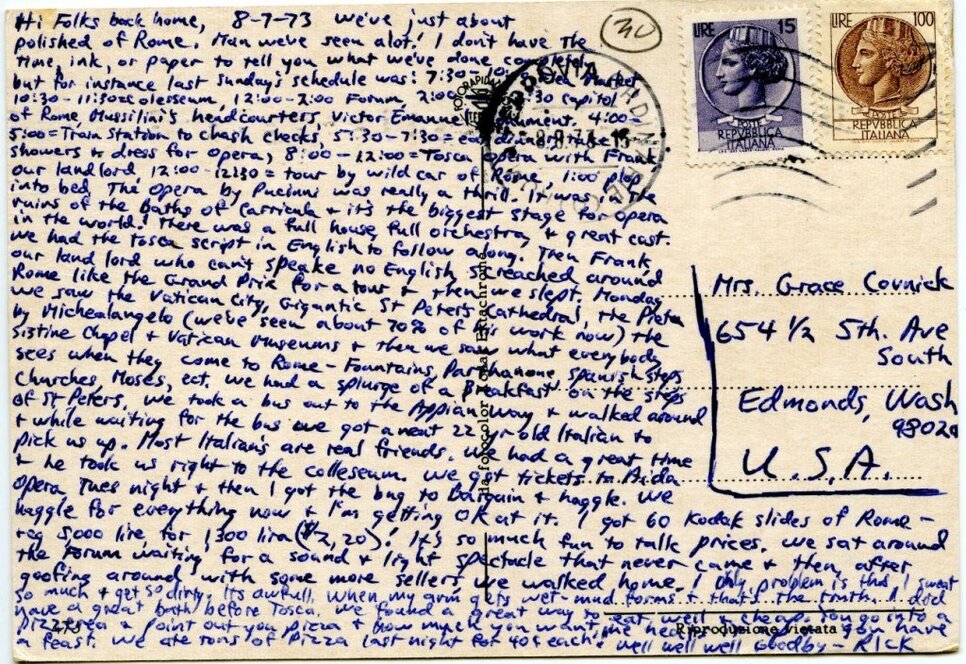 Hi Folks back home, 8-7-73 We've just about
polished of Rome. Man we've seen alot! I don't have the
time, ink, or paper to tell you what we've done completly
but for instance last Sunday's schedule was: 7:30-10: Market
10:30-11:30=colesseum, 12:00-2:00 Forum, 2:00 :30 capitol
of Rome, Mussilini's headcourters, Victor Emanuel monument, 4:00=
5:00=Train Station to chash checks, 5:30-7:30=eat dinner, take
showers + dress for opera, 8:00-12:00=Tosca opera with Frank
our landlord 12:00-12:30= tour by wild car of Rome, 1:00 plop
into bed. The Opera by Pucinni was really a thrill. It was in the
ruins of the Baths of Carricula + it's the biggest stage for opera
in the world! There was a full house, full orchestra, + great cast.
We had the Tosca script in English to follow along. Then Frank,
our land lord who can't speake no English, screached around
Rome like the Grand Prix for a tour + then we slept. Monday
we saw the Vatican City, Gigantic St Peter's Cathedral, the Pieta
by Michealangelo (we've seen about 70% of his work now) the
Sistine Chapel + Vatican Museums + then we saw what everybody
sees when they come to Rome-Fountains, Parthanone, Spanish steps
Churches, Moses, ect. We had a splurge of a Breakfast on the steps
of St Peters, we took a bus out to the Appian Way + walked around
+ while waiting for the bus we got a neat 22 yr old Italian to
pick us up. Most Italian's are real friends. We had a great time
+ he took us right to the colleseum. We got tickets to Aida
Opera Tues night + then I got the bug to Bargain + haggle. We
haggle for everything now + I'm getting OK at it. I got 60 Kodak slides of Rome-
reg 5,000 lire, for 1300 lira ($2,20). It's so much fun to talk prices. We sat around
the forum waiting for a sound + light spectacle that never came + then, after
goofing around with some more sellers we walked home. I only problem is that I sweat
so much + get so dirty. It's awfull, when my arm gets wet-mud forms + that's the truth. I did
have a great bath before Tosca. We found a great way to eat, well + cheap. You go into a
pizzarea + point out you pizza + how much you want you have
a feast. We ate tons of pizza last night for 40¢ each! Well well well Goodby-RICK
30
LIRE 15
POSTE
REPVBBLICA
ITALIANA
LIRE 100
POSTE
REPVBBLICA
ITALIANA
Mrs. Grace Covnick
654 1/2 5th. Ave
South
Edmonds, Wash
98020
U.S.A.
da fotocolor Kodak Ektachrome
Riproduzione Vietata